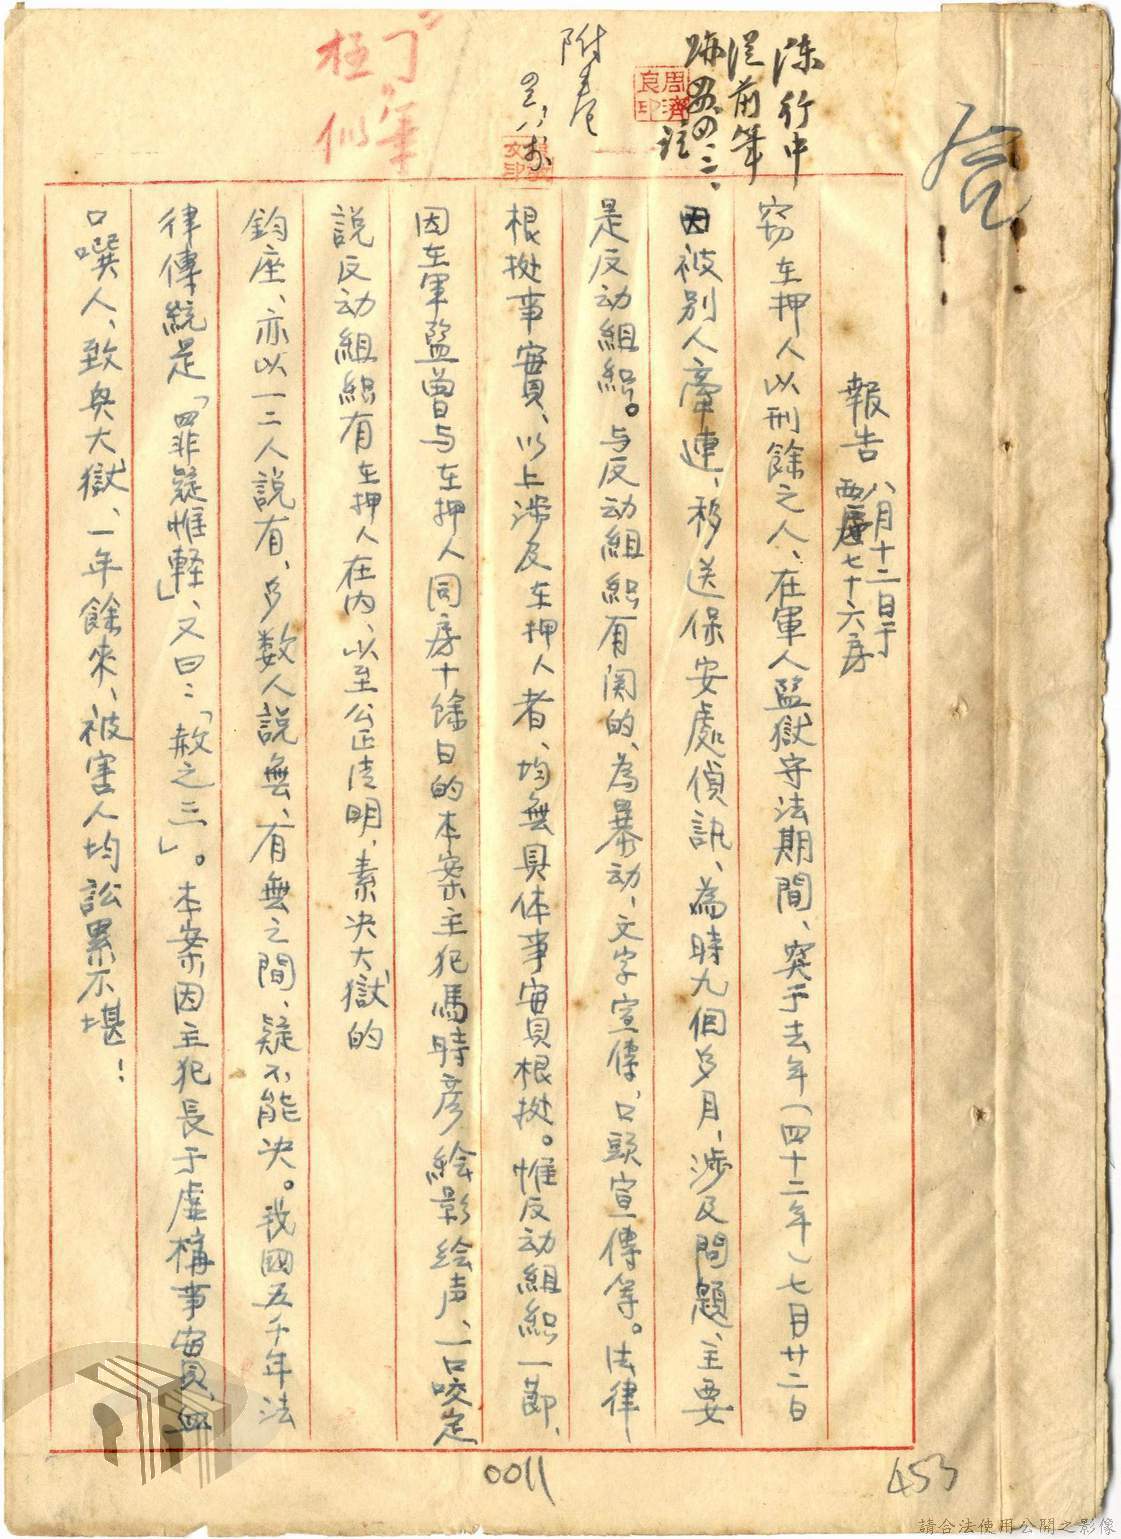 陳行中
從前筆
跡
註
附卷
報告 八月十二日于
西層七十六房
窃在押人以刑餘之人、在軍人監獄守法期間、突于去年(四十二年)七月廿二日
因被別人牽連、移送保安處偵訊、為時九個多月、涉及問題、主要
是反动組織。与反动組織有関的、為暴动、文字宣傳、口頭宣傳等。法律
根挻事實、以上涉及在押人者、均無具体事實根挻。惟反动組織一節、
因在軍監曾与在押人同房十餘日的本案主犯馬時彥繪影绘声、一口咬定
說反动組織有在押人在內、以至公正清明、素决大獄的
鈞座、亦以一二人說有、多数人說無、有無之間、疑不能决。我國五千年法
律傳統是「罪疑惟軽」、又曰:「赦之三」。本案因主犯長于虛構事實、血
口噀人、致興大獄、一年餘來、被害人均訟累不堪!
周濟良印
0011
453
請合法使用公開之影像